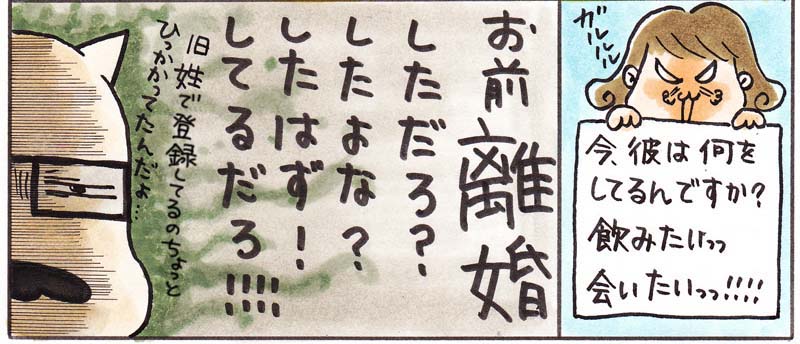 ガルルルル
今、彼は何を
してるんですか？
飲みたいっっ
会いたいっっ!!!!
お前離婚
しただろ？
したよな？
したはず！
してるだろ!!!!
旧姓で登録してるのちょっと
ひっかかってたんだよ…